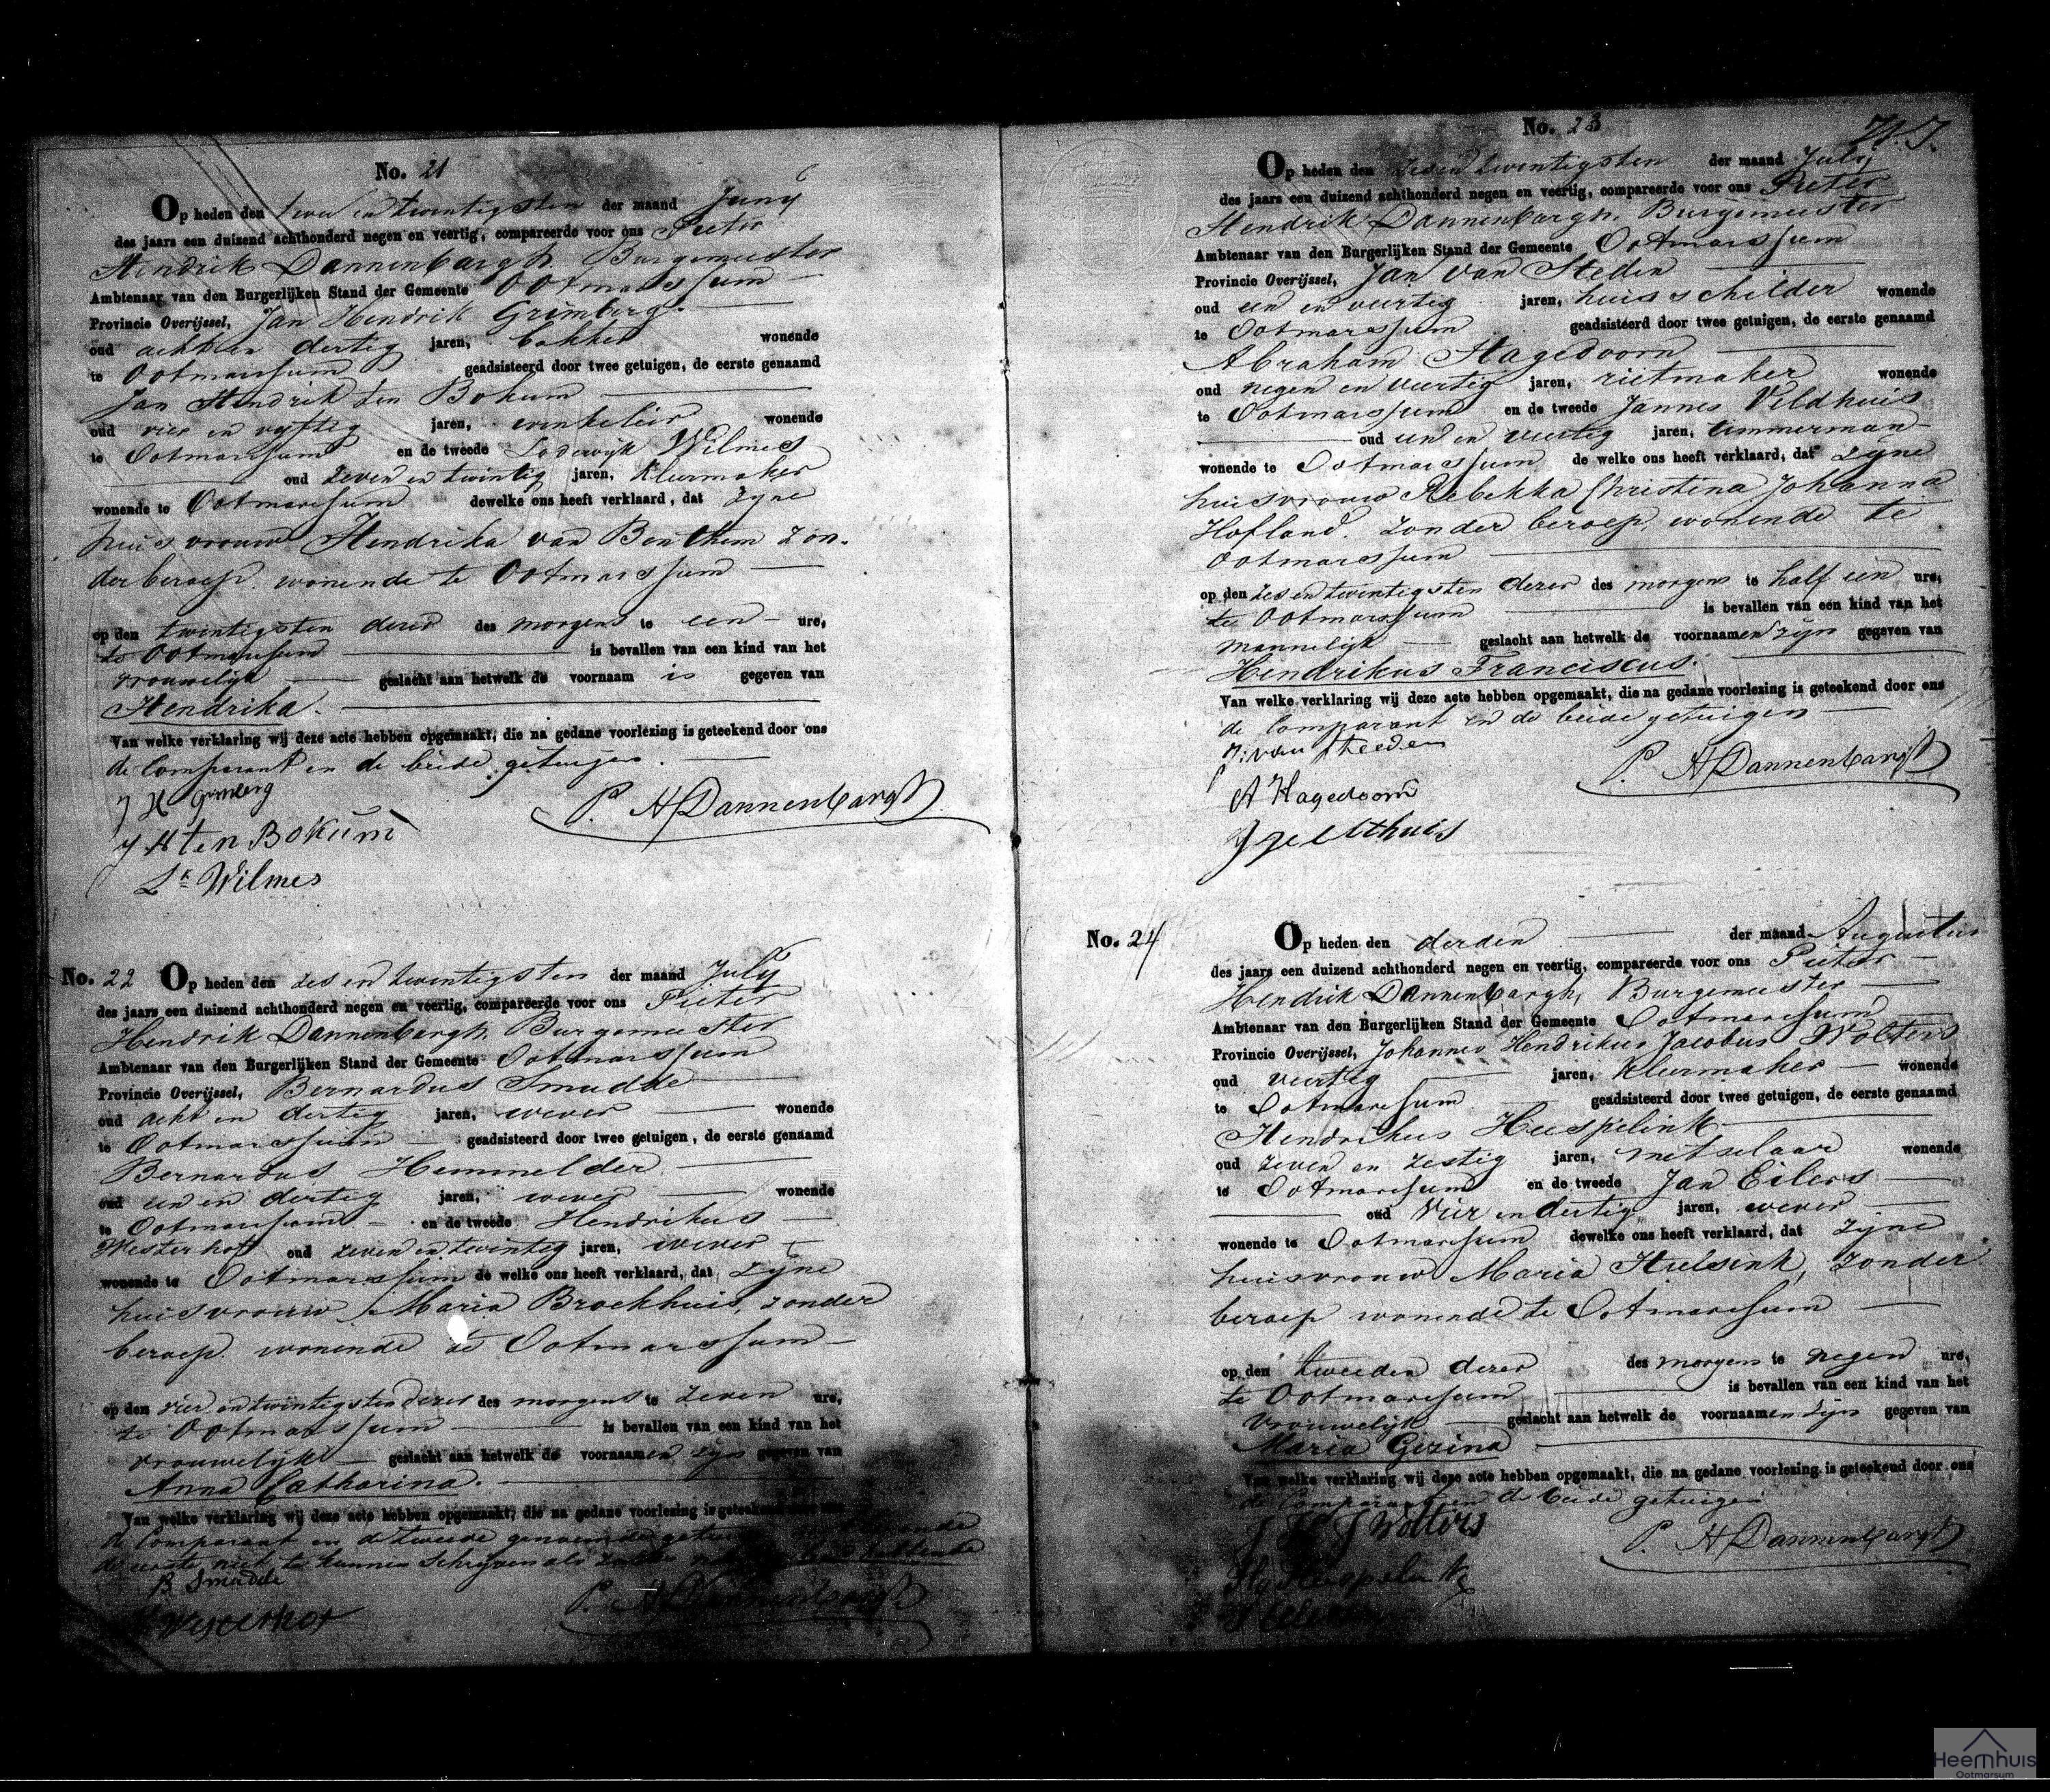 No. 21
Op heden den twee en twintigsten der maand Juny
des jaars een duizend achthonderd negen en veertig, compareerde voor ons Pieter
Hendrik Dannenbargh, Burgemeester
Ambtenaar van den Burgerlijken Stand der Gemeente Ootmarssum
Provincie Overijssel, Jan Hendrik Grimberg.
oud acht en dertig jaren, bakker wonende
te Ootmarssum geadsisteerd door twee getuigen, de eerste genaamd
Jan Hendrik ten Bokum
oud vier en vyftig jaren, winkelier wonende
te Ootmarssum en de tweede Lodewijk Wilmes
oud zeven en twintig jaren, kleermaker
wonende te Ootmarssum dewelke ons heeft verklaard, dat zyne
huisvrouw Hendrika van Benthem zon-
der beroep wonende te Ootmarssum
op den twintigsten dezer des morgens te een ure,
te Ootmarssum is bevallen van een kind van het
vrouwelijk geslacht aan hetwelk de voornaam is gegeven van
Hendrika.
Van welke verklaring wij deze acte hebben opgemaakt, die na gedane voorlezing is geteekend door ons
de Comparant en de beide getuigen.
J H Grimberg
P. H Dannenbargh
J H ten Bokum
Lk Wilmes
No. 22 Op heden den zes en twintigsten der maand July
des jaars een duizend achthonderd negen en veertig, compareerde voor ons Pieter
Hendrik Dannenbargh, Burgemeester
Ambtenaar van den Burgerlijken Stand der Gemeente Ootmarssum
Provincie Overijssel, Bernardus Smudde
oud acht en dertig jaren, wever wonende
te Ootmarssum geadsisteerd door twee getuigen, de eerste genaamd
Bernardus Hemmelder
oud een en dertig jaren, wever wonende
te Ootmarssum en de tweede Hendrikus
Westerhof oud zeven en twintig jaren, wever
wonende te Ootmarssum de welke ons heeft verklaard, dat zyne
huisvrouw Maria Broekhuis, zonder
beroep wonende te Ootmarssum
op den vier en twintigsten dezer des morgens te zeven ure,
te Ootmarssum is bevallen van een kind van het
vrouwelijk geslacht aan hetwelk de voornaamen zijn gegeven van
Anna Catharina.
Van welke verklaring wij deze acte hebben opgemaakt, die na gedane voorlezing is geteekend door ons
de Comparant en de tweede genoemde getuige
de eerste niet te kunnen schryven als
B Smudde
P. H Dannenbargh
Westerhof
No. 23
Op heden den zeven twintigsten der maand July
des jaars een duizend achthonderd negen en veertig, compareerde voor ons Pieter
Hendrik Dannenbargh, Burgemeester
Ambtenaar van den Burgerlijken Stand der Gemeente Ootmarssum
Provincie Overijssel, Jan van Steden
oud een en veertig jaren, huisschilder wonende
te Ootmarssum geadsisteerd door twee getuigen, de eerste genaamd
Abraham Hagedoorn
oud negen en veertig jaren, rietmaker wonende
te Ootmarssum en de tweede Jannes Veldhuis
oud een en veertig jaren, timmerman
wonende te Ootmarssum de welke ons heeft verklaard, dat zyne
huisvrouw Rebekka Christina Johanna
Hofland, zonder beroep, wonende te
Ootmarssum
op den zes en twintigsten dezer des morgens te half een ure,
te Ootmarssum is bevallen van een kind van het
mannelijk geslacht aan hetwelk de voornaamen zijn gegeven van
Hendrikus Franciscus.
Van welke verklaring wij deze acte hebben opgemaakt, die na gedane voorlezing is geteekend door ons
de Comparant en de beide getuigen
J: van Steeden
P. H Dannenbargh
A Hagedoorn
J Veldhuis
No. 24 Op heden den derden der maand Augustus
des jaars een duizend achthonderd negen en veertig, compareerde voor ons Pieter
Hendrik Dannenbargh, Burgemeester
Ambtenaar van den Burgerlijken Stand der Gemeente Ootmarssum
Provincie Overijssel, Johannes Hendrikus Jacobus Wolters
oud veertig jaren, kleermaker wonende
te Ootmarssum geadsisteerd door twee getuigen, de eerste genaamd
Hendrikus Huspelink
oud zeven en zestig jaren, metselaar wonende
te Ootmarssum en de tweede Jan Eilers
oud vier en dertig jaren, wever
wonende te Ootmarssum dewelke ons heeft verklaard, dat zyne
huisvrouw Maria Hulsink, zonder
beroep wonende te Ootmarssum
op den tweeden dezer des morgens te negen ure,
te Ootmarssum is bevallen van een kind van het
vrouwelijk geslacht aan hetwelk de voornaamen zijn gegeven van
Maria Gezina
Van welke verklaring wij deze acte hebben opgemaakt, die na gedane voorlezing is geteekend door ons
de Comparant en de beide getuigen
J H J Wolters
P. H Dannenbargh
Heemhuis
Ootmarsum